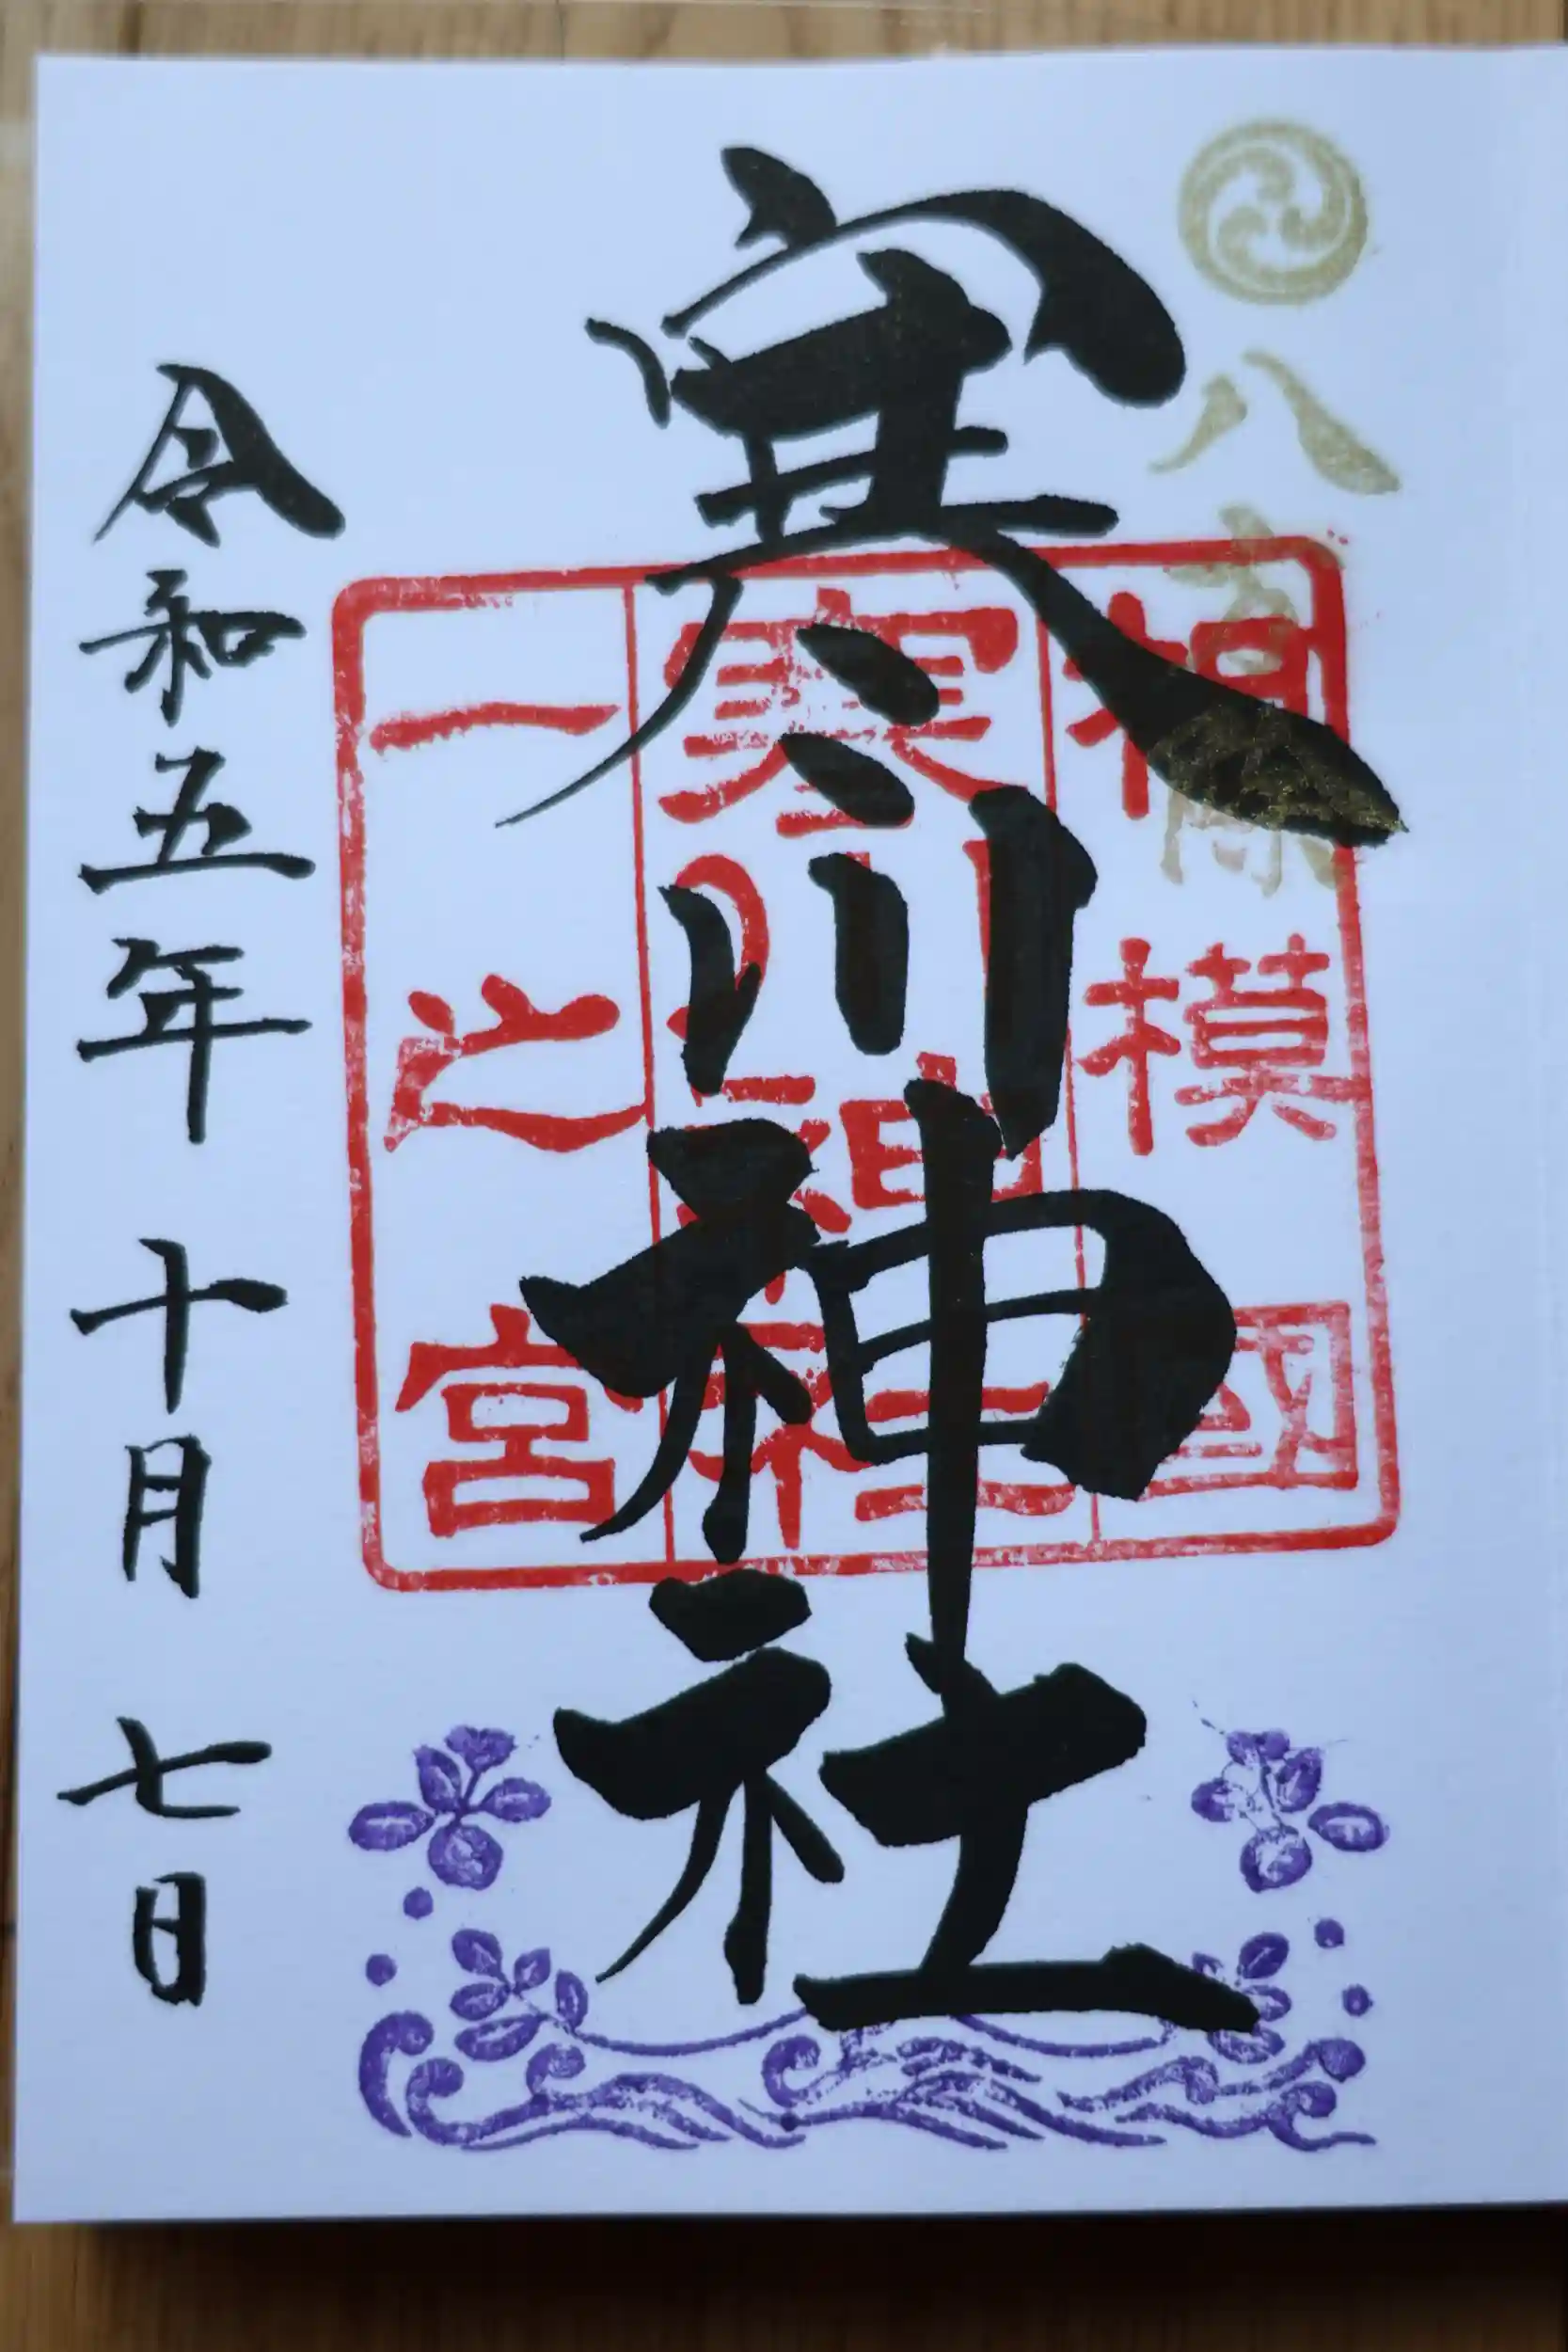 八方除
寒川神社
相模國
寒川神社
一之宮
令和五年 十月 七日